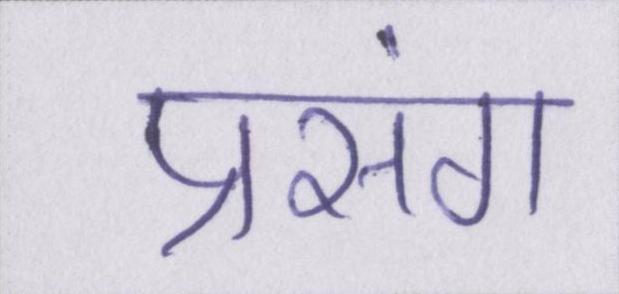 प्रसंग